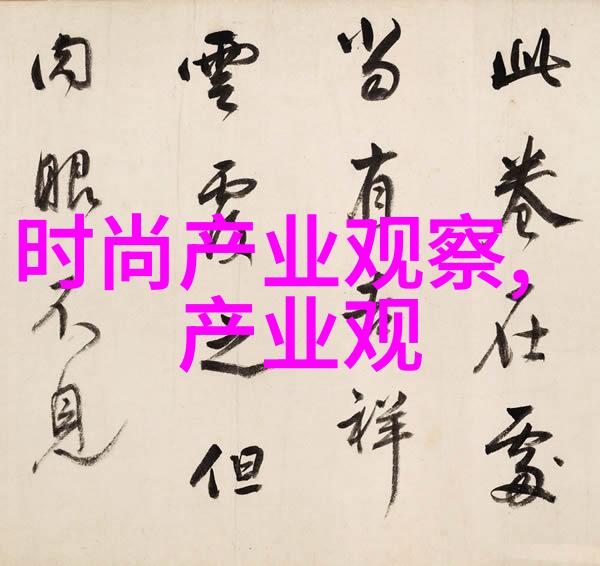 时尚产业观察,
产业观
此卷在處
当有吉祥
雲覆之但
肉眼不見